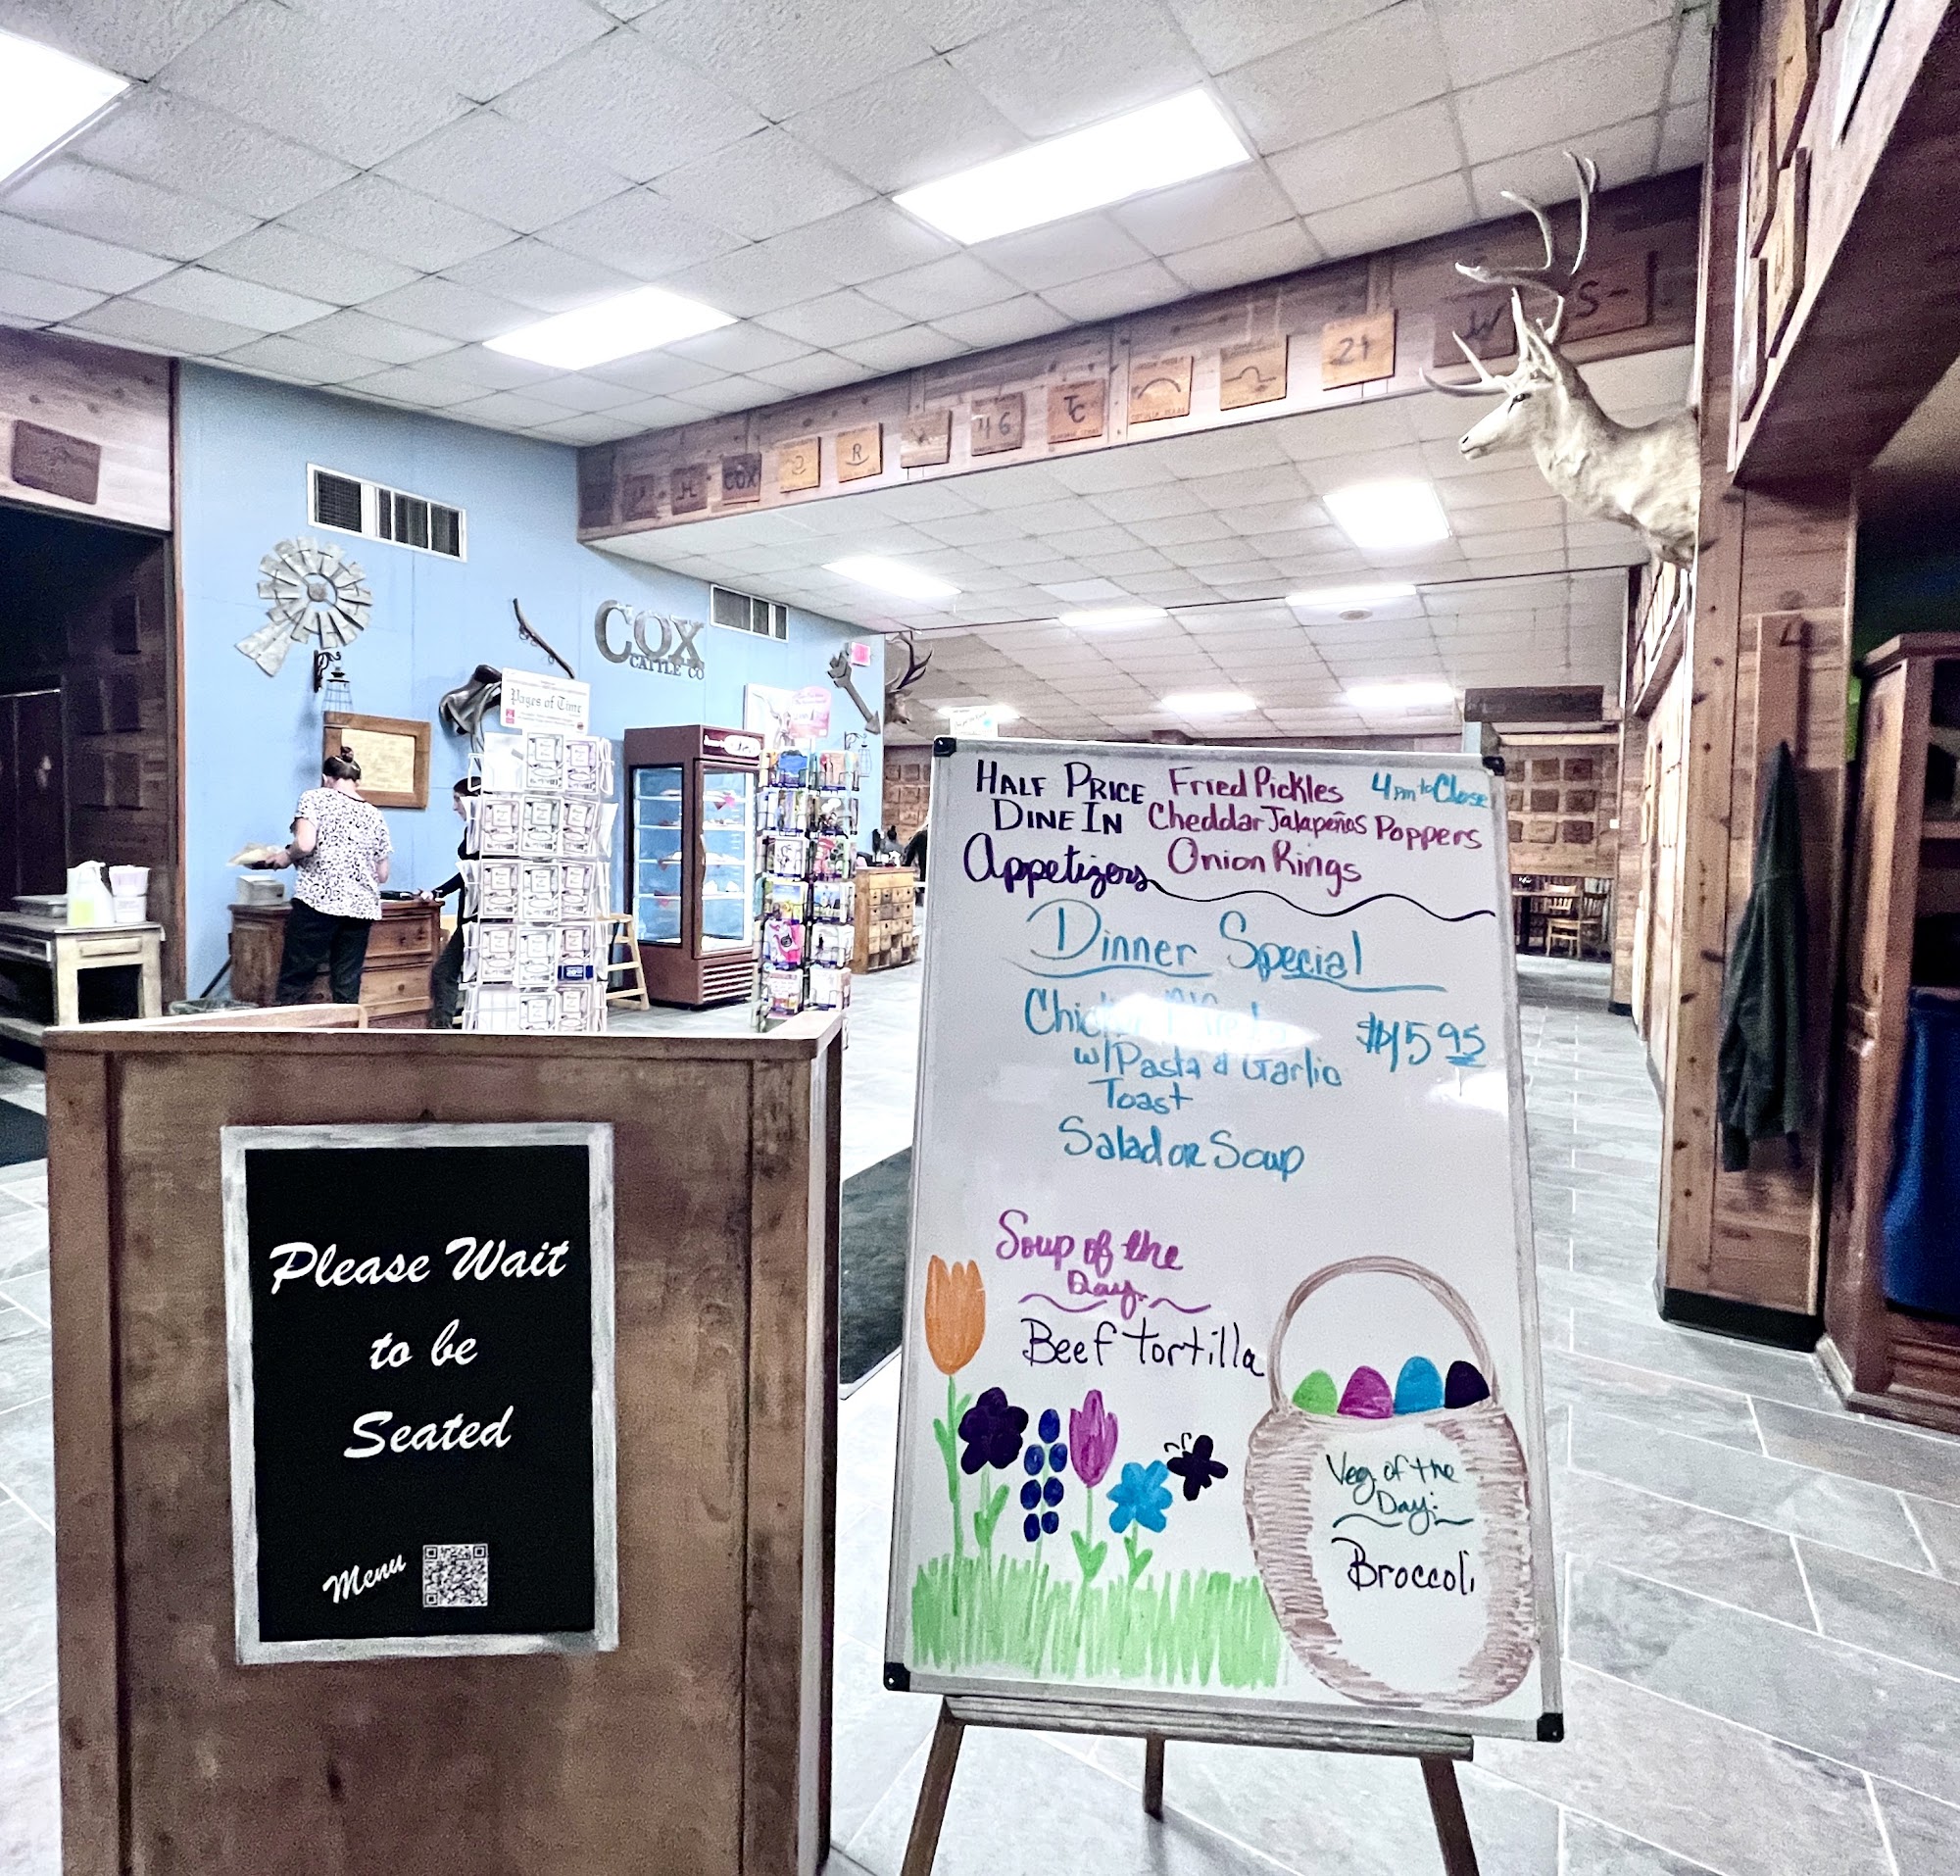 COX
CATTLE CO
Pages of Time
COX
R
TC
21
HALF PRICE Fried Pickles 4pm to Close
DINE IN Cheddar Jalapeños Poppers
Appetizers Onion Rings
Dinner Special
Chicken $15.95
w/Pasta & Garlic
Toast
Salad or Soup
Soup of the
Day
Beef Tortilla
Veg. of the
Day:
Broccoli
Please Wait
to be
Seated
Menu